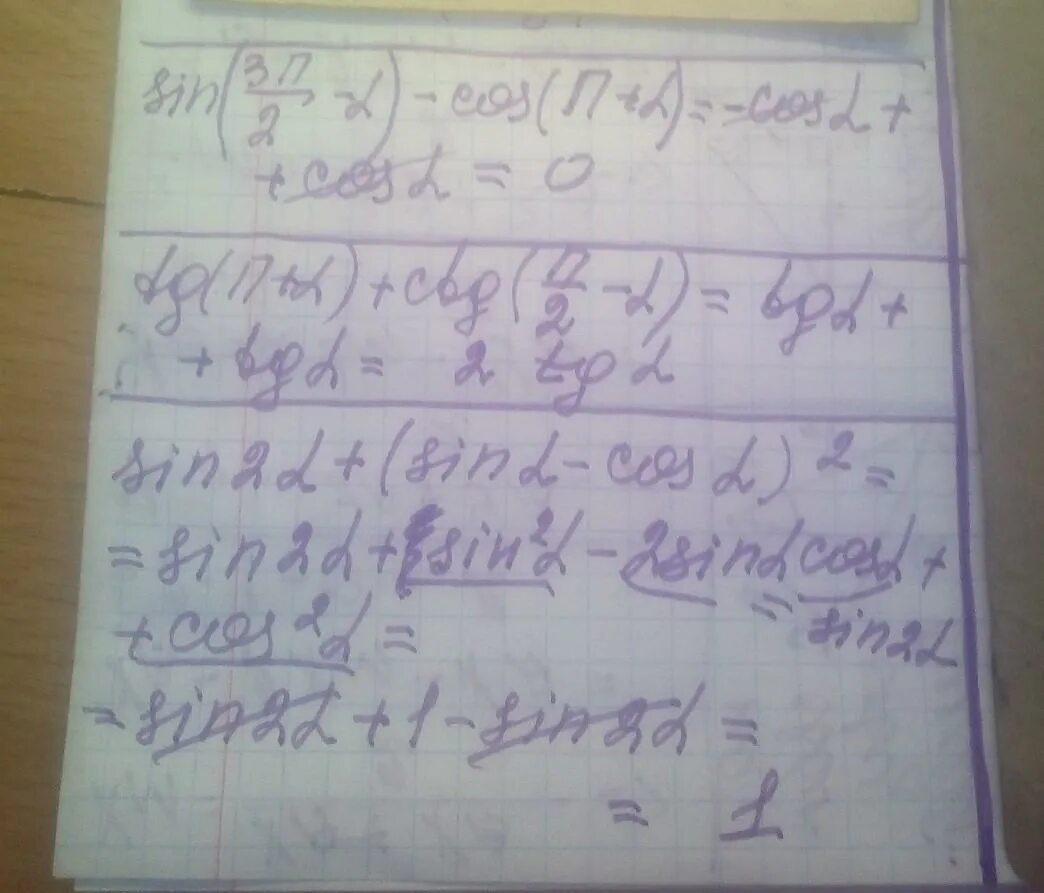 sin(3π/2 - α) - cos(π + α) = -cos α +
+ cos α = 0
tg(π + α) + ctg(π/2 - α) = tg α +
+ tg α = 2 tg α
sin 2α + (sin α - cos α)² =
= sin 2α + sin²α - 2 sin α cos α +
= sin 2α
+ cos²α =
= sin 2α + 1 - sin 2α =
= 1